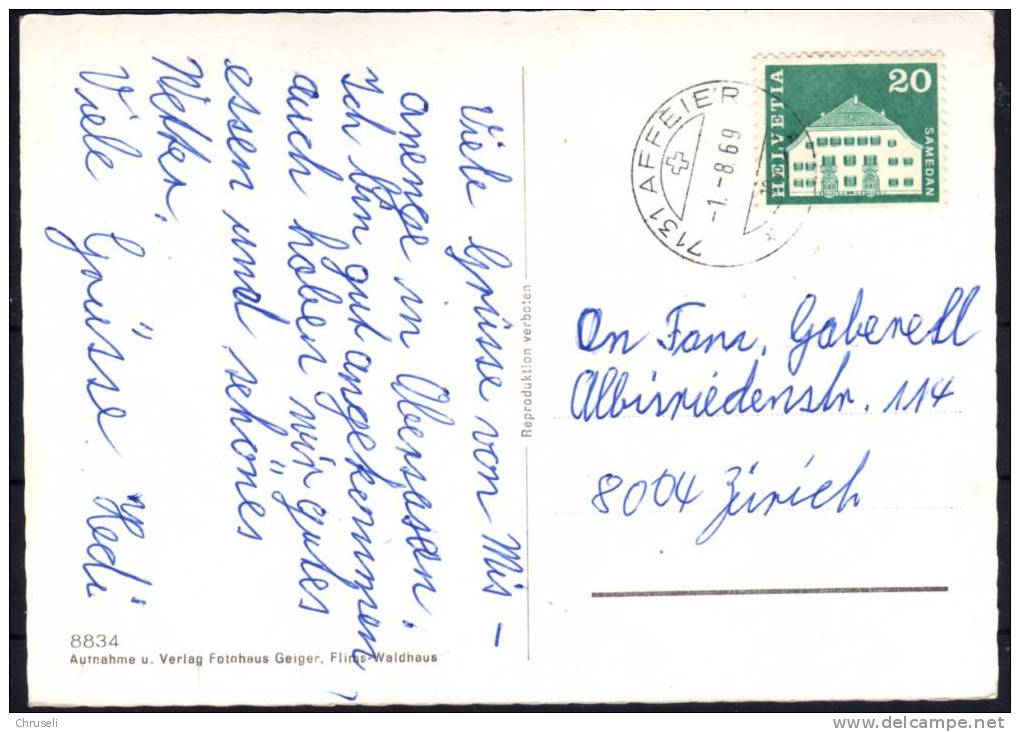 Viele Grüsse von Mis-
anenge in Obersaxen.
Ich bin gut angekommen,
auch haben wir gutes
essen und schönes
Wetter.
Viele Grüsse Hedi
8834
Aufnahme u. Verlag Fotohaus Geiger, Flims-Waldhaus
Reproduktion verboten
7131 AFFEIER
-1.-8.69
HELVETIA
20
SAMEDAN
An Fam. Gaberell
Albisriedenstr. 114
8004 Zürich
Chruseli
www.delcampe.net